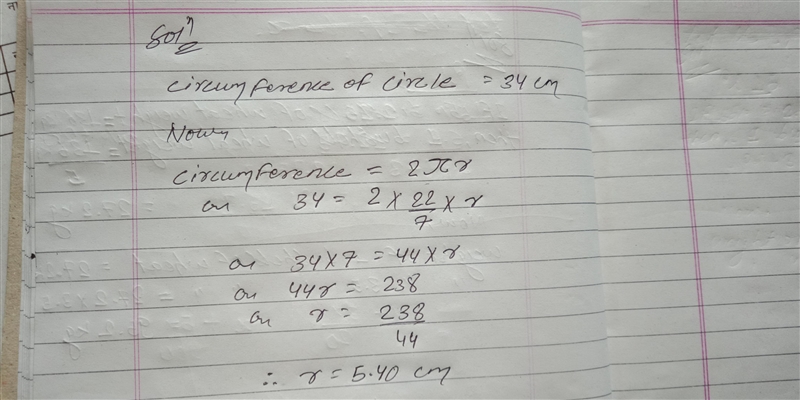 Solⁿ
circumference of circle = 34 cm
Now,
circumference = 2πr
or 34 = 2 × 22/7 × r
or 34×7 = 44×r
or 44r = 238
or r = 238/44
∴ r = 5.40 cm